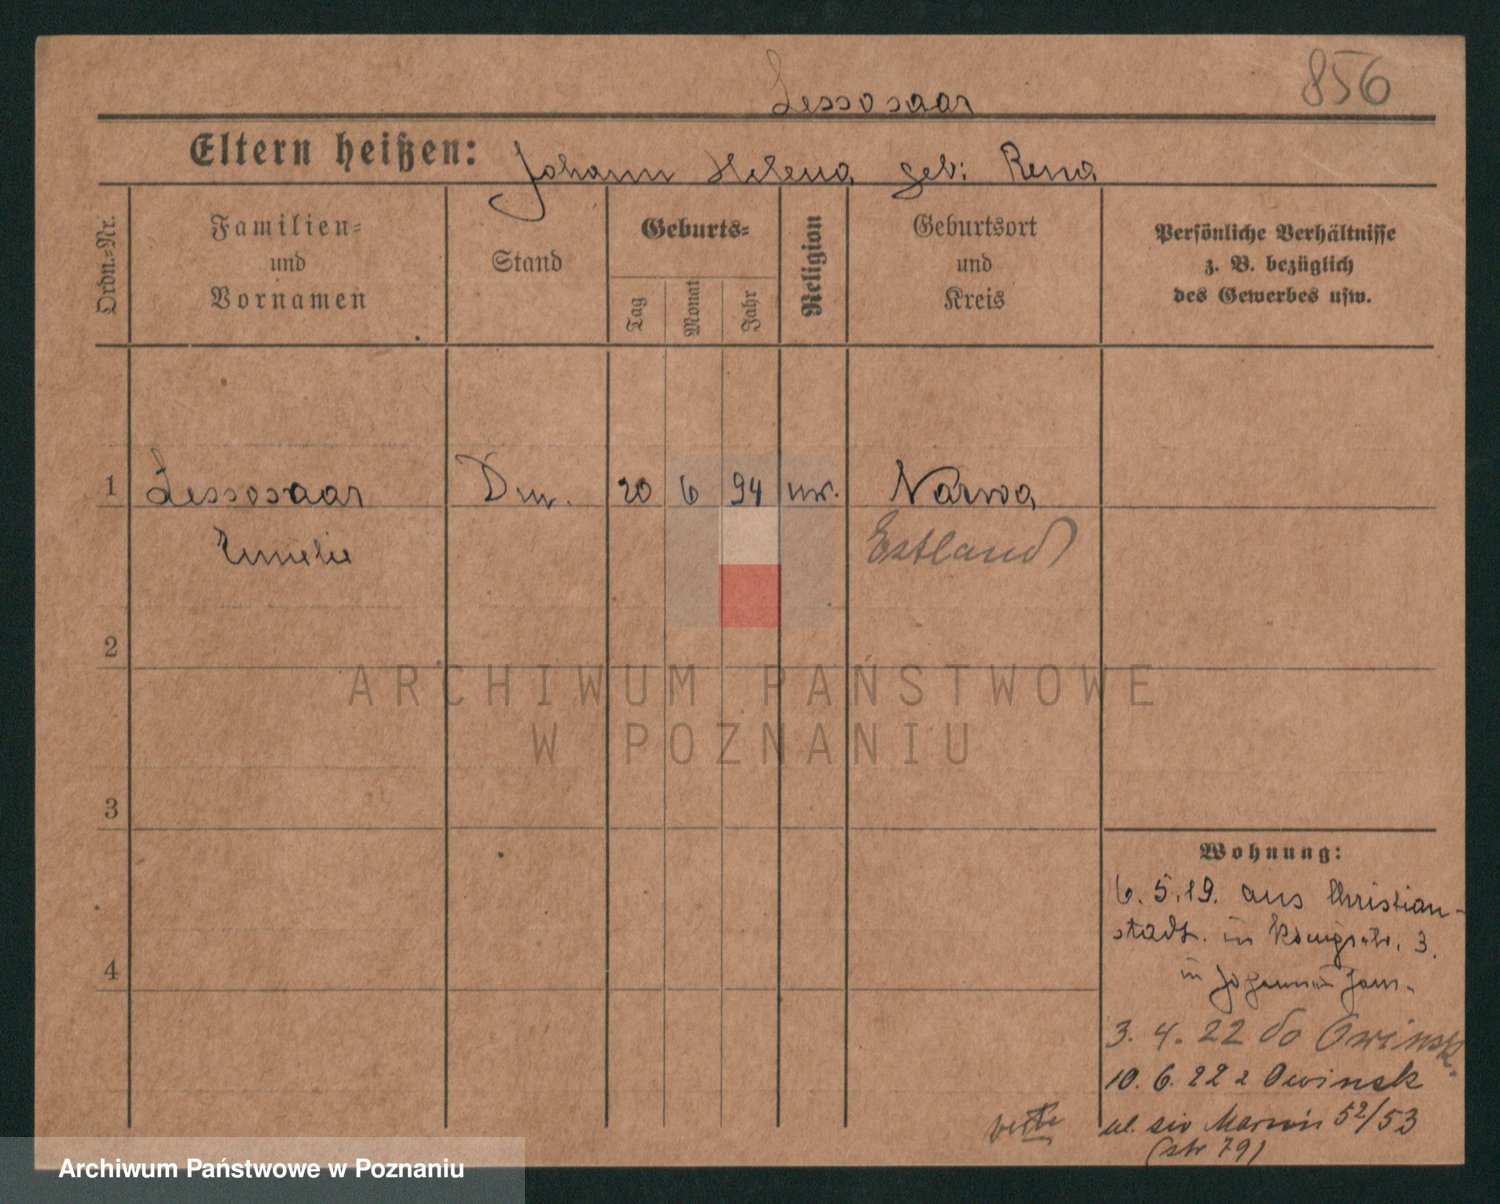 Lessosaar 856
Eltern heißen: Johann Helena geb: Rena
Ordn.-Nr.
Familien-
und
Vornamen
Stand
Geburts-
Tag
Monat
Jahr
Religion
Geburtsort
und
Kreis
Persönliche Verhältnisse
z. B. bezüglich
des Gewerbes usw.
1 Lessosaar 20 6 94 Narwa
Emelie Estland
2
3
4
Wohnung:
6. 5. 19. aus Christian-
stadt. in Königstr. 3.
in
3. 4. 22 do Owinsk.
10. 6. 22 z Owinsk
ul. św Marcin 52/53
(str 79)
ARCHIWUM PAŃSTWOWE
W POZNANIU
Archiwum Państwowe w Poznaniu